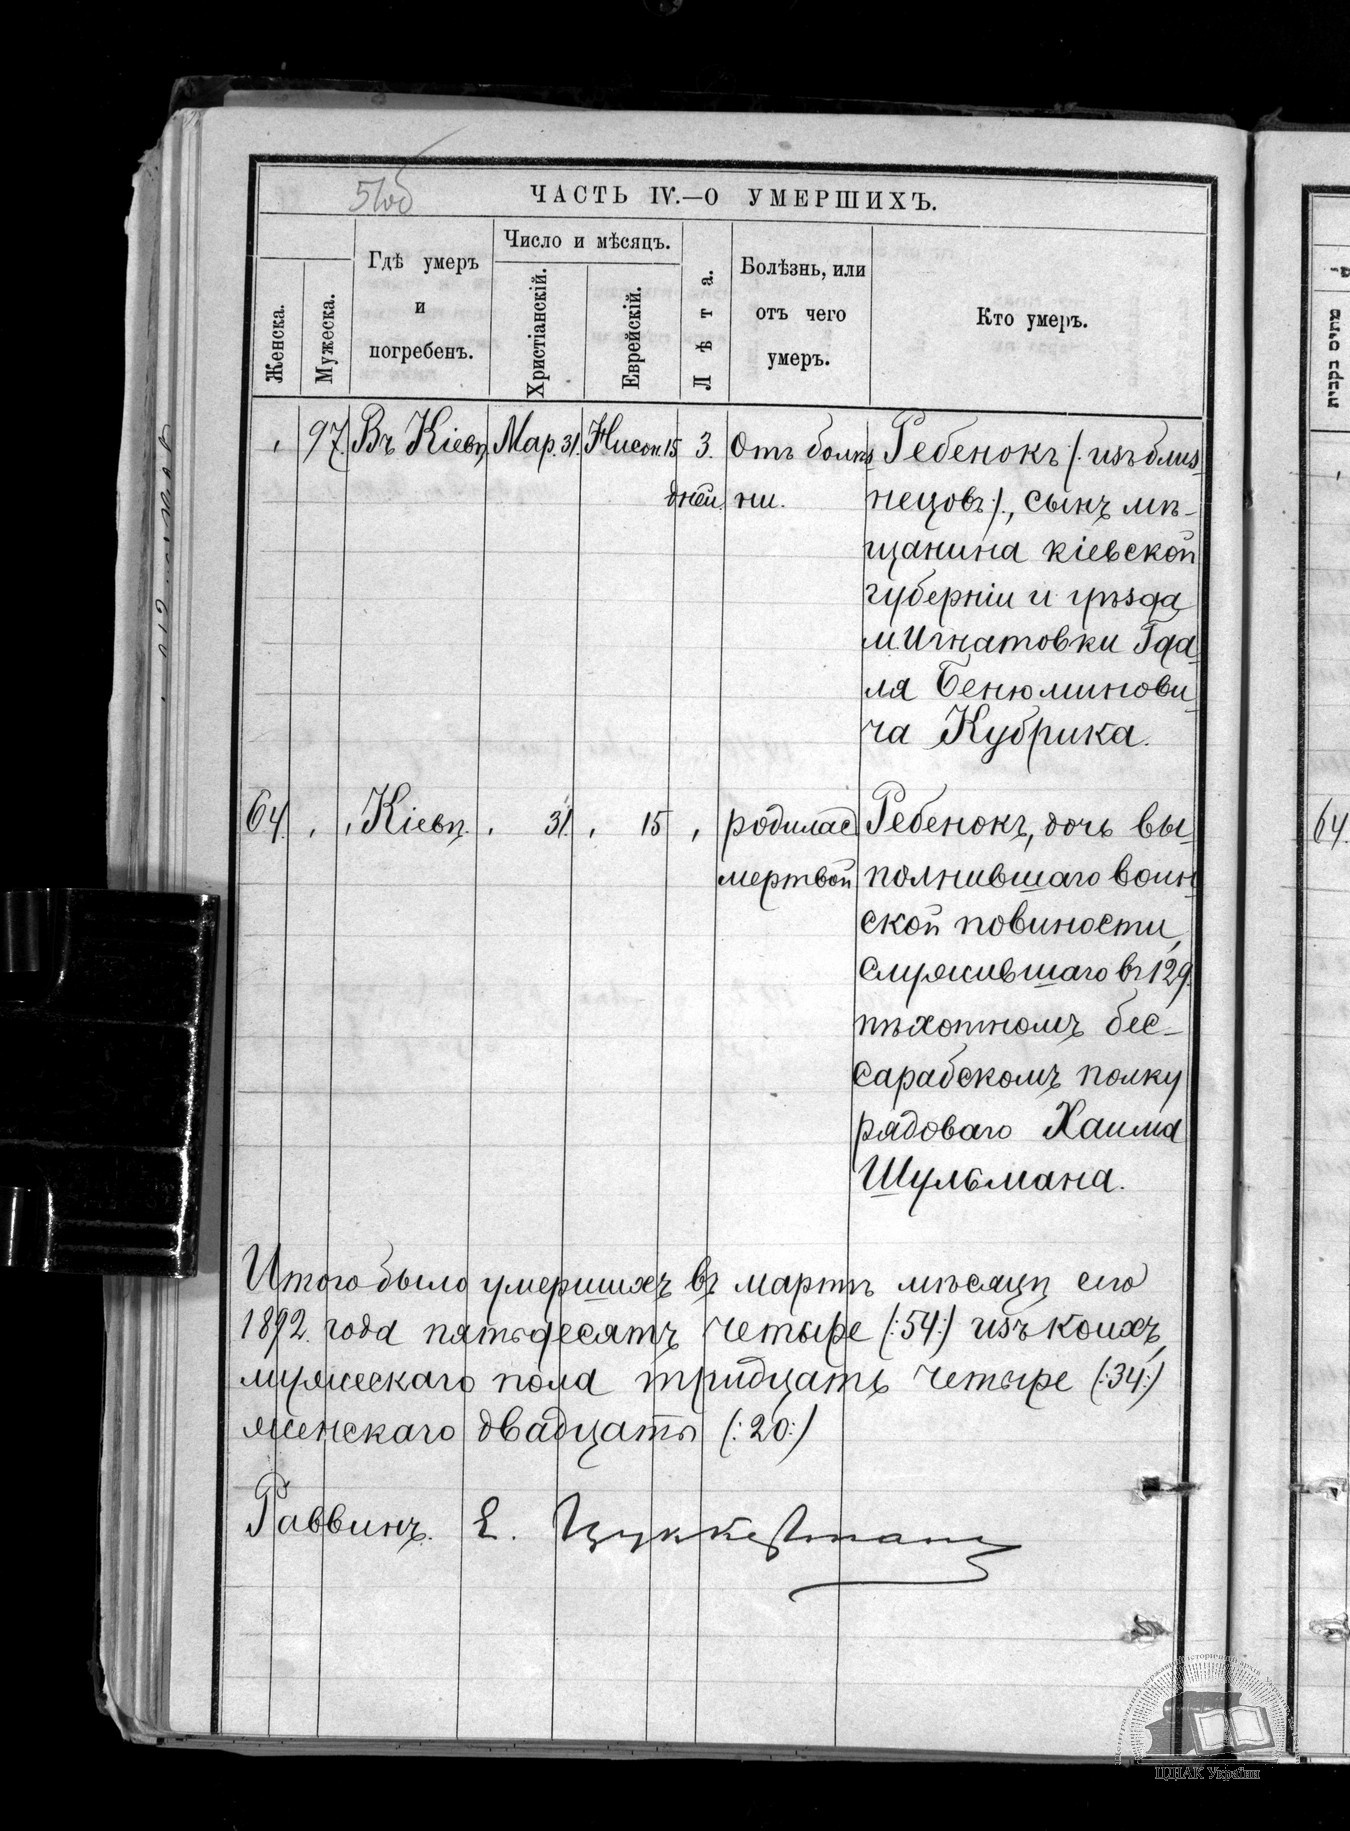 51об
ЧАСТЬ IV.—О УМЕРШИХЪ.
Женска.
Мужеска.
Гдѣ умеръ
и
погребенъ.
Число и мѣсяцъ.
Христіанскій.
Еврейскій.
Лѣта.
Болѣзнь, или
отъ чего
умеръ.
Кто умеръ.
97. Въ Кіевѣ Мар. 31. Нисон. 15 3. Отъ болѣз Ребенокъ /: изъ близ-
дней. ни. нецовъ:/, сынъ мѣ-
щанина кіевской
губерніи и уѣзда
м. Игнатовки Гда-
ля Бенюминови-
ча Кубрика.
64. Кіевѣ. 31. 15 родилас Ребенокъ, дочь вы-
мертвой полнившаго воин
ской повиности,
служившаго въ 129.
пѣхотномъ бес-
сарабскомъ полку
рядоваго Хаима
Шульмана.
Итого было умершихъ въ мартѣ мѣсяцѣ сего
1892. года пятьдесятъ четыре (:54:) изъ коихъ,
мужескаго пола тридцать четыре (:34:)
женскаго двадцать (:20:)
Раввинъ. Е. Цуккерманъ
64.
ЦДІАК України